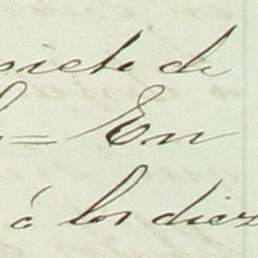 siete de
= En
á los diez